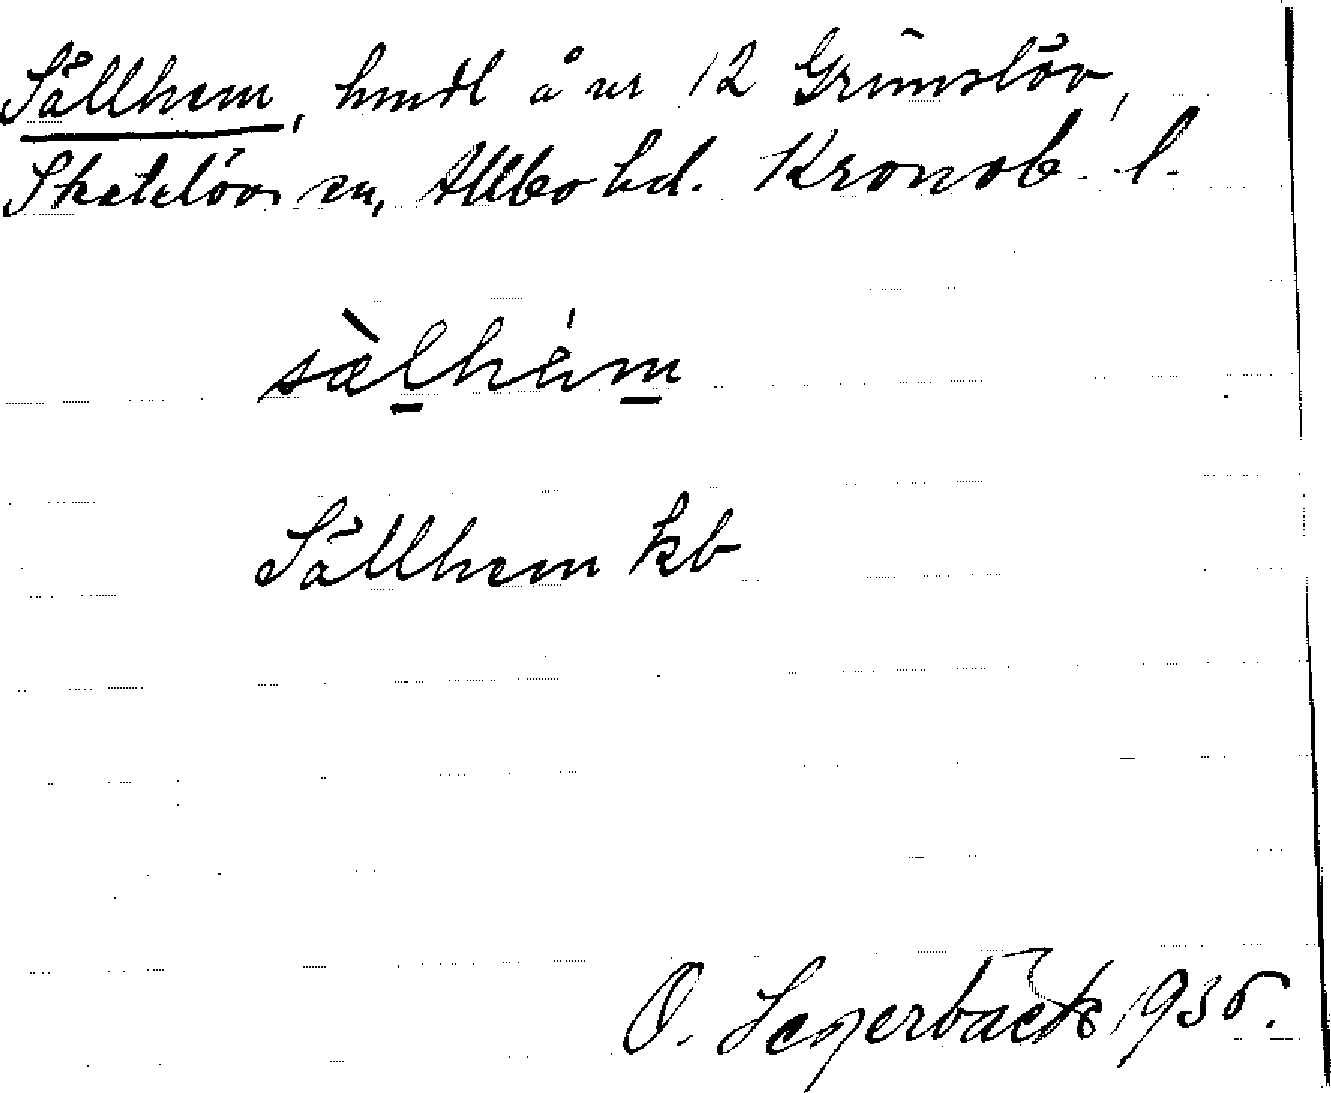 Sållhem, hmdl å nr 12 Grimslöv,
Skatelövs sn, Allbo hd. Kronob. l.
sàlhém
Sållhem kb
O. Segerbäck 1935.